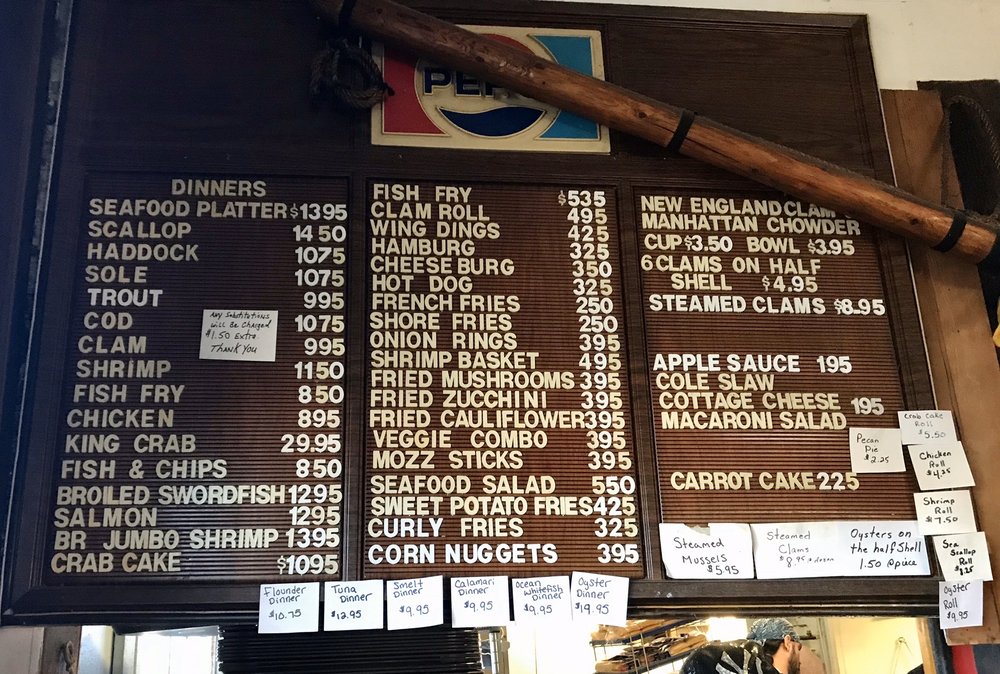 DINNERS
SEAFOOD PLATTER $1395
SCALLOP 1450
HADDOCK 1075
SOLE 1075
TROUT 995
COD 1075
CLAM 995
SHRIMP 1150
FISH FRY 850
CHICKEN 895
KING CRAB 29.95
FISH & CHIPS 850
BROILED SWORDFISH 1295
SALMON 1295
BR JUMBO SHRIMP 1395
CRAB CAKE $1095
Any Substitutions
will Be Charged
$1.50 Extra
THANK YOU
FISH FRY $535
CLAM ROLL 495
WING DINGS 425
HAMBURG 325
CHEESEBURG 350
HOT DOG 325
FRENCH FRIES 250
SHORE FRIES 250
ONION RINGS 395
SHRIMP BASKET 495
FRIED MUSHROOMS 395
FRIED ZUCCHINI 395
FRIED CAULIFLOWER 395
VEGGIE COMBO 395
MOZZ STICKS 395
SEAFOOD SALAD 550
SWEET POTATO FRIES 425
CURLY FRIES 325
CORN NUGGETS 395
NEW ENGLAND CLAM
MANHATTAN CHOWDER
CUP $3.50 BOWL $3.95
6 CLAMS ON HALF
SHELL $4.95
STEAMED CLAMS $8.95
APPLE SAUCE 195
COLE SLAW
COTTAGE CHEESE 195
MACARONI SALAD
CARROT CAKE 225
Pecan
Pie
$2.25
Crab Cake
Roll
$5.50
Chicken
Roll
$4.25
Shrimp
Roll
$7.50
Sea
Scallop
Roll
Oyster
Roll
$9.95
Steamed
Mussels
$5.95
Steamed
Clams
Oysters on
the half Shell
1.50 apiece
Flounder
Dinner
$10.75
Tuna
Dinner
$12.95
Smelt
Dinner
$9.95
Calamari
Dinner
$9.95
Ocean
Whitefish
Dinner
$9.95
Oyster
Dinner
$19.95